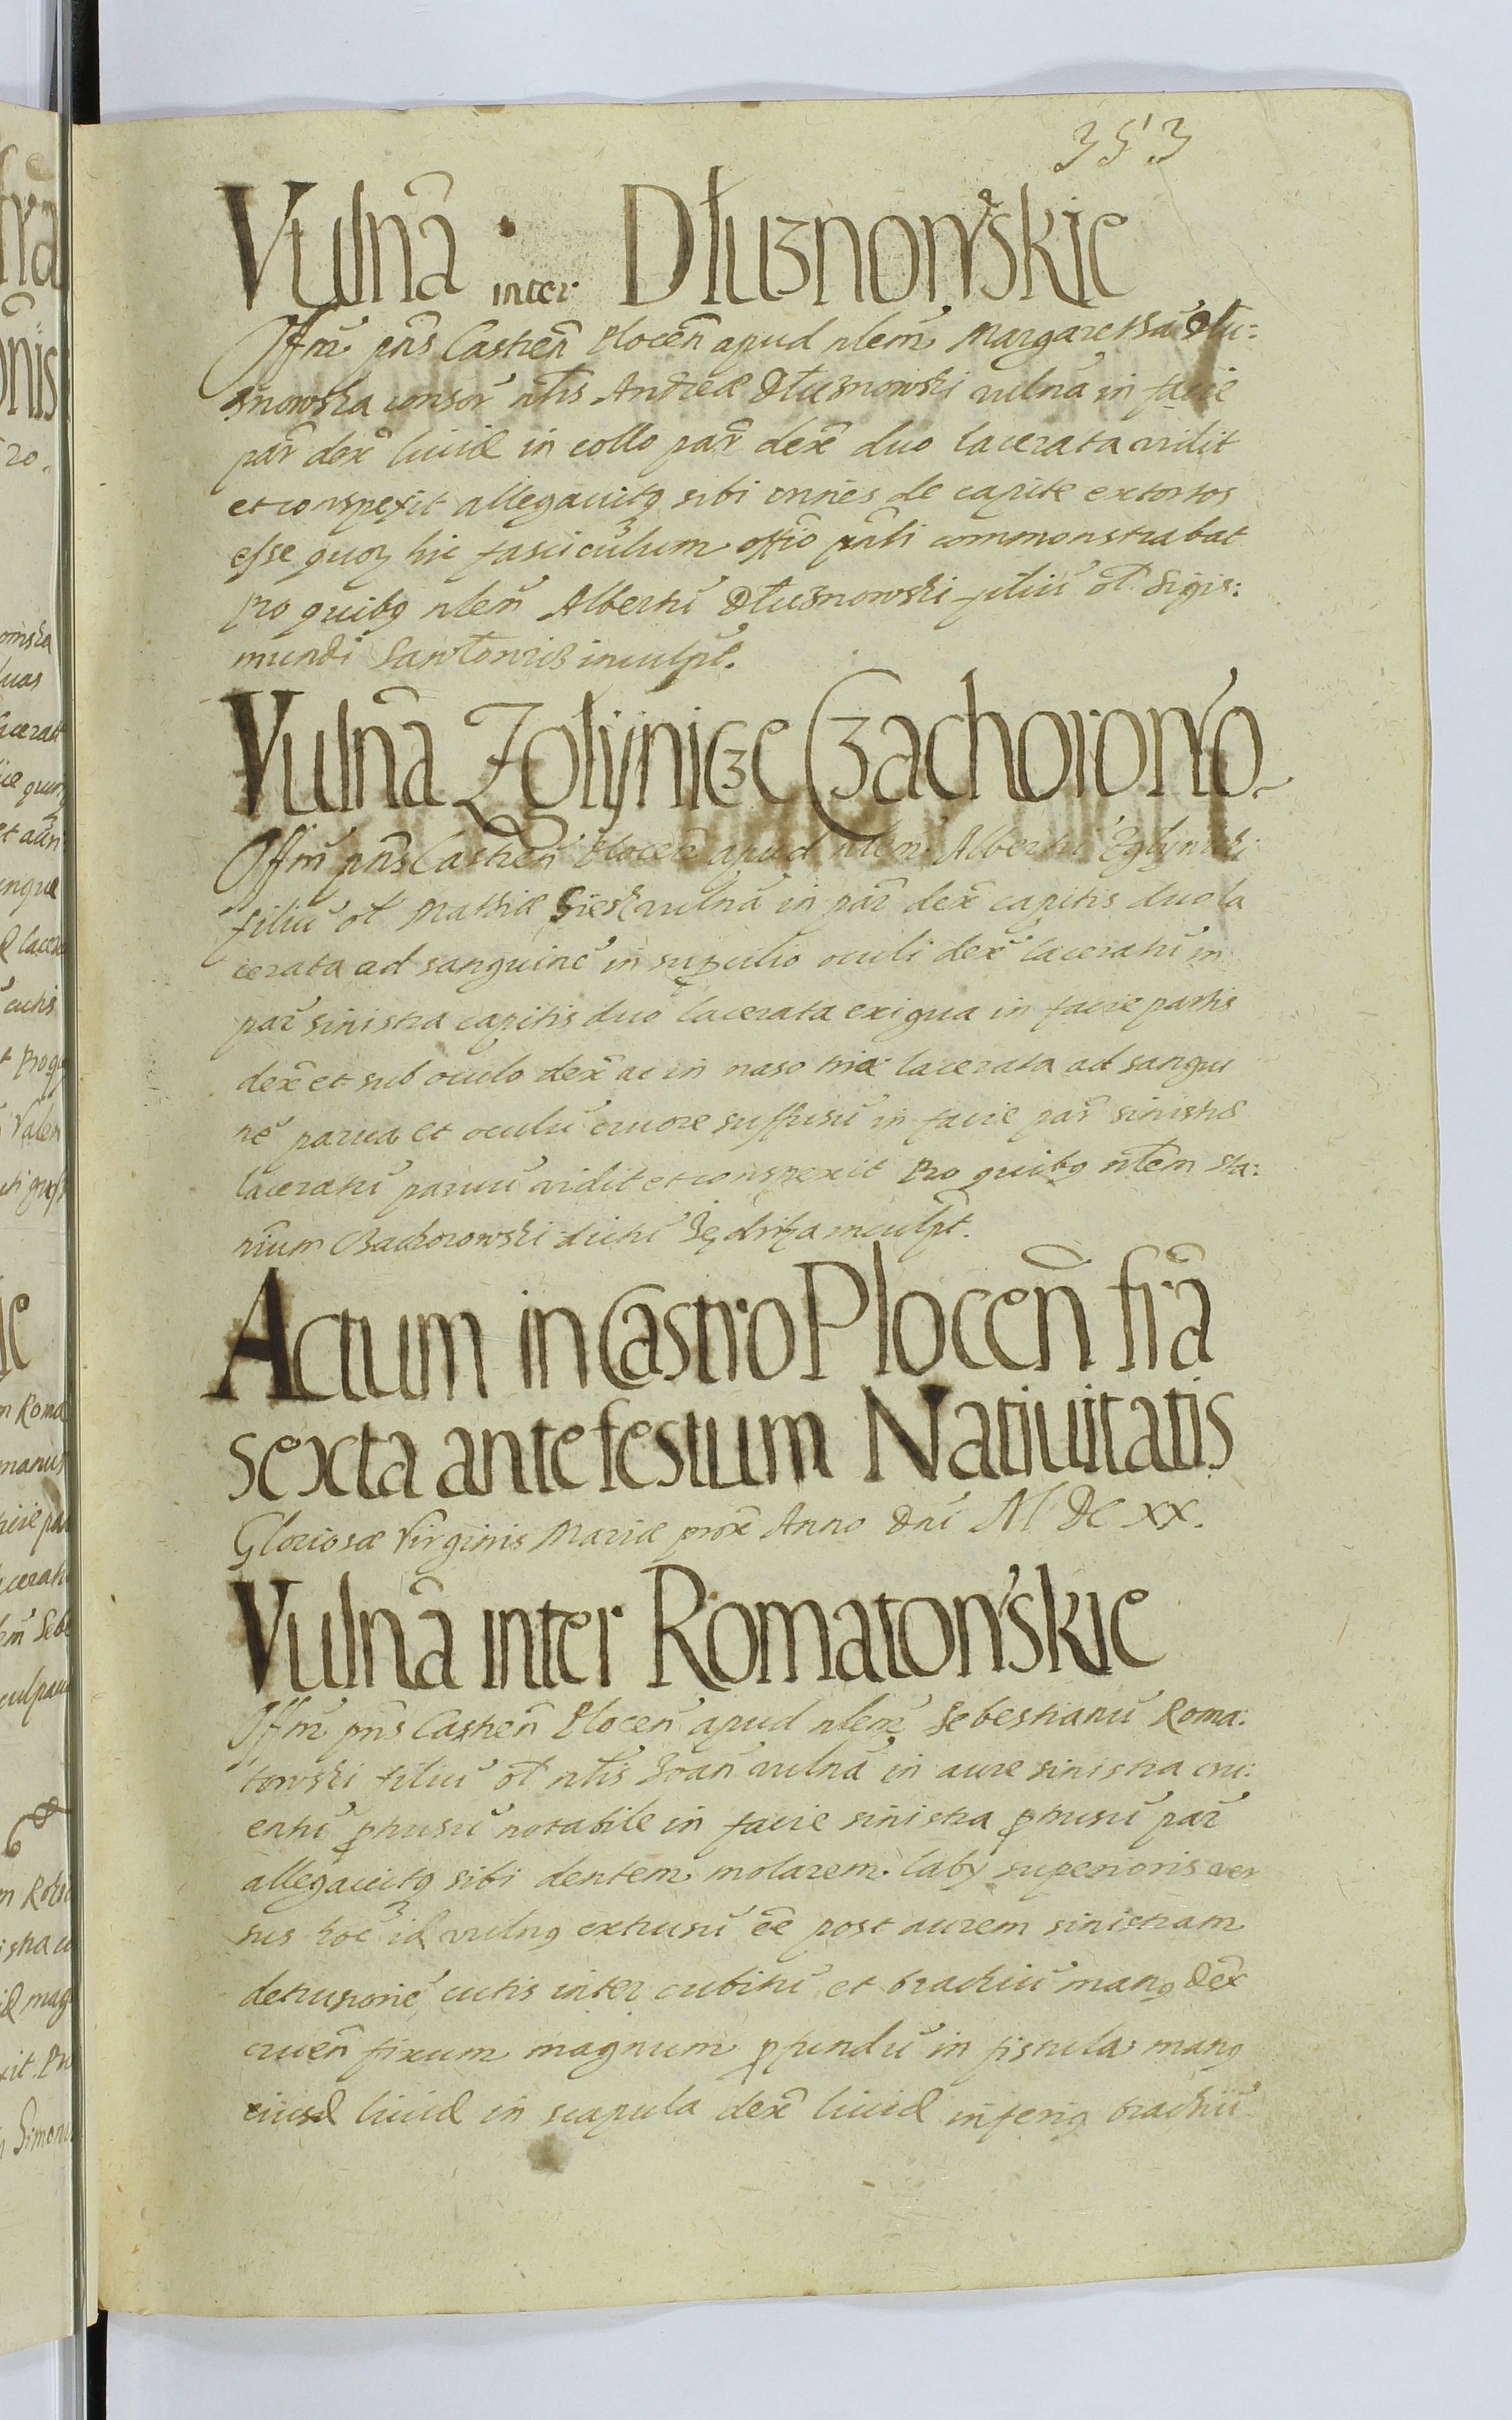 353
Vulnã inter Dłuznowskie
Offm̃ pñs Castreñ Plocen̄ apud nlem̃ Margarethã Dłu:
znowska consor̃ nl̃is Andreæ Dłuznowski vulnã in facie
par̃ dex̃ liuid in collo par̃ dex̃ duo lacerata vidit
et conspexit allegauitq sibi crines de capite extortos
esse quoꝝ hic fasciculum offio pñti commonstrabat
pro quibq nlem̃ Albertũ Dłuznowski filiũ ol̃ Sigis:
mundi inculpt.
Vulnã Zglijnicze Czachorowo
Offm̃ pñs Castreñ Plocen̄ apud nlem̃ Albertũ Zglijnicki
filiũ ol̃ Mathiæ vulnã in par̃ dex̃ capitis duo la
cerata ad sanguinẽ in supcilio oculi dex̃ laceratũ in
par̃ sinistra capitis duo lacerata exigua in facie partis
dex̃ et sub oculo dex̃ ac in naso tria lacerata ad sangui
nẽ parua et oculũ cruore suffusũ in facie par̃ sinistra
laceratũ paruũ vidit et conspexit Pro quibq nl̃em Sta:
nium Czachorowski dictũ inculpt.
Actum in Castro Plocen̄ frã
sexta ante festum Natiuitatis
Gloriosæ Virginis Mariæ prox̃ Anno Dñi M DC XX.
Vulnã inter Romatowskie
Offm̃ pñs Castreñ Plocen̄ apud nlem̃ Sebestianũ Roma:
towski filiũ ol̃ nl̃is Joan̄ vulnã in aure sinistra cru:
entũ ꝑtusũ notabile in facie sinistra ꝑtusũ par̃
allegauitq sibi dentem molarem labij superioris ver
sus hoc id vulnq extrusũ eẽ post aurem sinistram
detrusionẽ cutis inter cubitũ et brachiũ manq dex̃
cruen̄ fixum magnum ꝓfundũ in fistula manq
eiusd liuid in scapula dex̃ liuid inferiq brachiũ